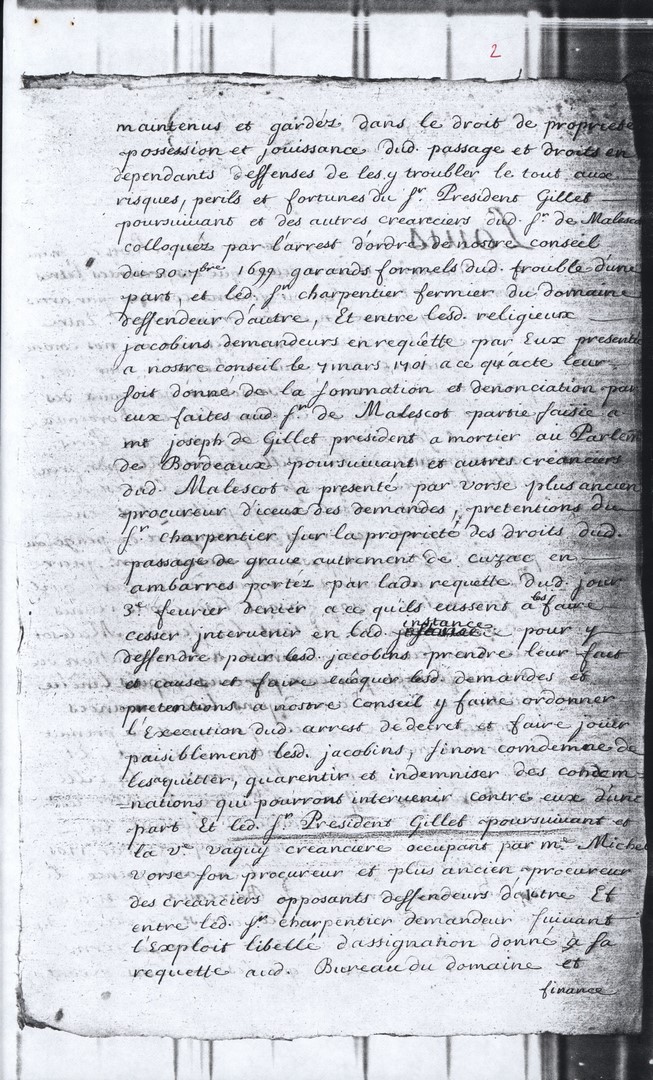 2
maintenus et gardéz dans le droit de propriété
possession et jouissance dud. passage et droits en
dependants deffenses de les y troubler le tout aux
risques, perils et fortunes du Sr. President Gillet
poursuivant et des autres creanciers dud. Sr. de Malescot
colloquéz par l'arrest d'ordre de nostre conseil
du 30 7bre 1699 garands formels dud. trouble d'une
part, et led. Sr. charpentier fermier du domaine
deffendeur d'autre, Et entre lesd. religieux
jacobins demandeurs en requette par Eux presentée
a nostre conseil le 7 mars 1701 a ce qu'acte leur
soit donné de la sommation et denonciation par
eux faites aud. Sr. de Malescot partie saisie a
mr joseph de Gillet president a mortier au Parlem
de Bordeaux poursuivant et autres créanciers
dud. Malescot a presenté par vorse plus ancien
procureur d'iceux des demandes, pretentions du
Sr. charpentier sur la propriété des droits dud.
passage de grave autrement de cuzac en
ambarres portez par lad. requette dud. jour
3e. fevrier denier a ce quils eussent a faire
cesser jntervenir en led. instance pour y
deffendre pour lesd. jacobins prendre leur fait
et cause et faire evoquer lesd. demandes et
pretentions a nostre Conseil y faire ordonner
l'Execution dud. arrest de decret et faire jouir
paisiblement lesd. jacobins, sinon comdemne de
les aquitter, guarentir et indemniser des condem-
-nations qui pourront intervenir contre eux d'une
part Et led. Sr. President Gillet poursuivant et
la ve. vaguy creanciere occupant par me. Michel
vorse son procureur et plus ancien procureur
des créanciers opposants deffendeurs d'autre Et
entre led. Sr. charpentier demandeur suivant
l'Exploit libellé d'assignation donné a sa
requette aud. Bureau du domaine et
finance